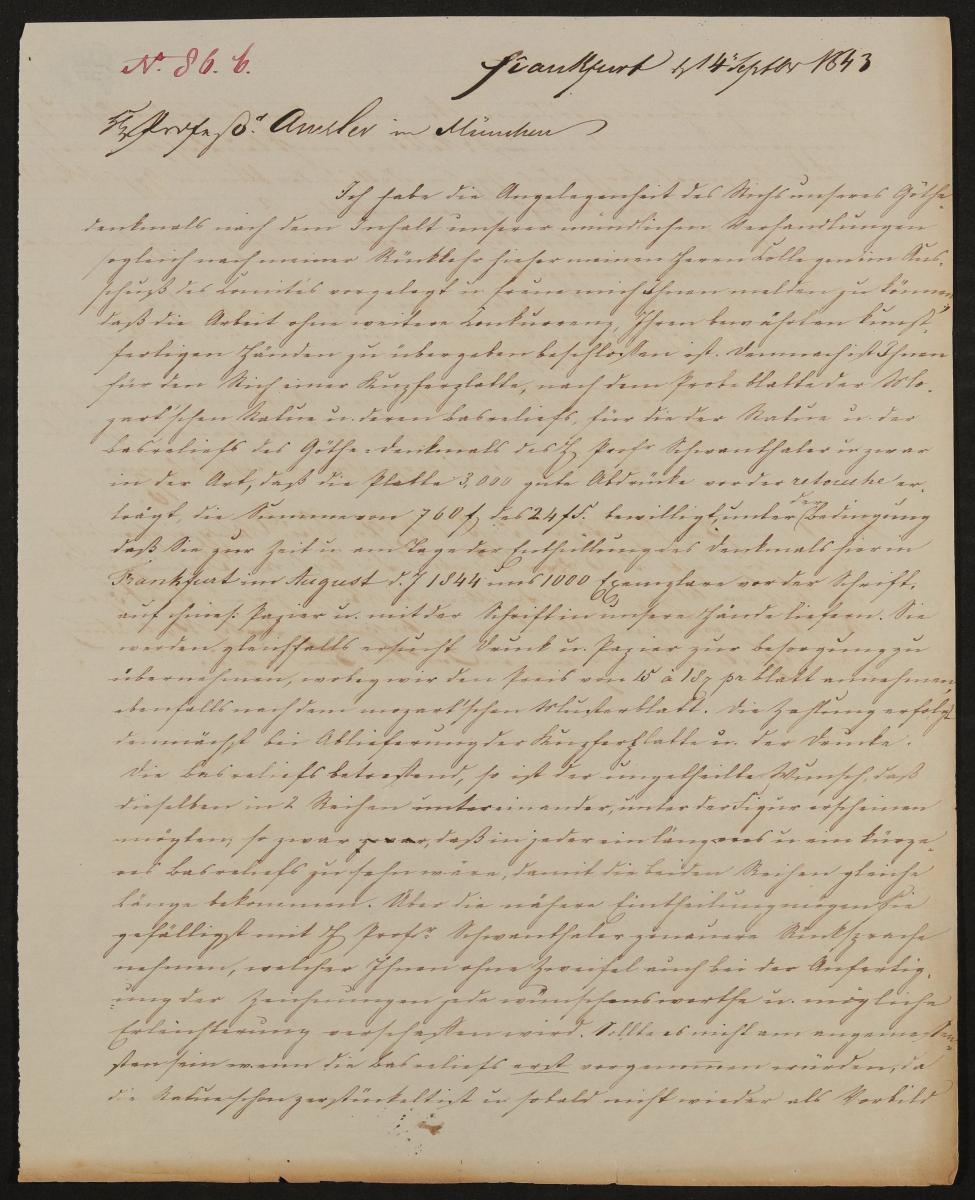 N. 86. b.
Frankfurt d 14 Septbr 1843
Hr Profeßor Amsler in München
Ich habe die Angelegenheit des Stichs unseres Göthe-
denkmals nach dem Inhalt unserer mündlichen Verhandlungen
sogleich nach meiner Rückkehr hieher meinen Herren Collegen im Aus-
schuß des Comités vorgelegt u freue mich Ihnen melden zu können,
daß die Arbeit ohne weitere Conkurrenz, Ihren bewährten kunst-
fertigen Händen zu übergeben beschloßen ist. Demnach ist Ihnen
für den Stich einer Kupferplatte, nach dem Probeblatte der Mo-
zart'schen Statue u. deren Basreliefs, für die der Statue u. der
Basreliefs des Göthe-Denkmals des H Profr Schwanthaler u zwar
in der Art, daß die Platte 3,000 gute Abdrücke vor der retouche er-
trägt, die Summe von 760 f des 24 fs. bewilligt, unter der Bedingung
daß Sie zur Zeit u. am Tage der Enthüllung des Denkmals hier in
Frankfurt im August d. J 1844 uns 1000 Exemplare vor der Schrift,
auf chines: Papier u. mit der Schrift in unsere Hände liefern. Sie
werden gleichfalls ersucht Druck u. Papier zur Besorgung zu
übernehmen, wobey wir den Preis von 15 a 18 pr Blatt annehmen,
ebenfalls nach dem mozart'schen Musterblatt. Die Zahlung erfolgt
demnächst bei Ablieferung der Kupferplatte u. der Drucke.
Die Basreliefs betreffend, so ist der ungetheilte Wunsch, daß
dieselben in 2 Reihen untereinander, unter der Figur erscheinen
mögten, so zwar, daß in jeder ein längeres u ein kürze-
res Basreliefs zu sehn wäre, damit die beiden Reihen gleiche
Länge bekommen. Über die nähere Eintheilung mögen Sie
gefälligst mit H Profr Schwanthaler genauere Rücksprache
nehmen, welcher Ihnen ohne Zweifel auch bei der Anfertig-
ung der Zeichnungen jede wünschenswerthe u. mögliche
Erleichterung verschaffen wird. Sollte es nicht am angemeßen-
sten sein wenn die Basreliefs erst vorgenommen würden, da
die Statue schon zerstückelt ist u sobald nicht wieder als Vorbild